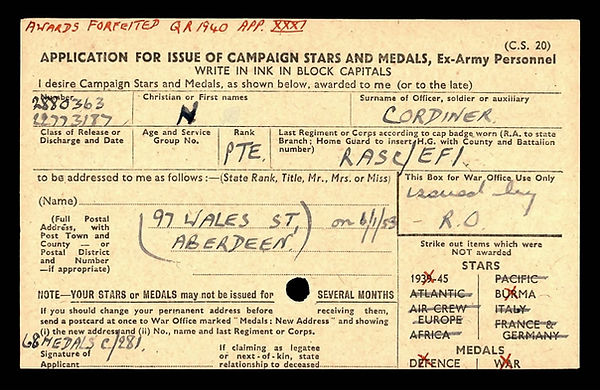 AWARDS FORFEITED QR1940 APP. XXXI
(C.S. 20)
APPLICATION FOR ISSUE OF CAMPAIGN STARS AND MEDALS, Ex-Army Personnel
WRITE IN INK IN BLOCK CAPITALS
I desire Campaign Stars and Medals, as shown below, awarded to me (or to the late)
Number Christian or First names Surname of Officer, soldier or auxiliary
2880363
22773187 N CORDINER.
Class of Release or Discharge and Date Age and Service Group No. Rank Last Regiment or Corps according to cap badge worn (R.A. to state Branch; Home Guard to insert H.G. with County and Battalion number)
PTE. RASC/EFI
to be addressed to me as follows:—(State Rank, Title, Mr., Mrs. or Miss)
This Box for War Office Use Only
issued by
- R.O
(Name)
(Full Postal Address, with Post Town and County — or Postal District and Number —if appropriate)
(97 WALES ST, on 6/1/53
ABERDEEN.)
Strike out items which were NOT awarded
STARS
1939-45 PACIFIC
ATLANTIC BURMA
AIR CREW EUROPE ITALY
AFRICA FRANCE & GERMANY
MEDALS
DEFENCE WAR
NOTE—YOUR STARS or MEDALS may not be issued for SEVERAL MONTHS
If you should change your permanent address before receiving them,
send a postcard at once to War Office marked "Medals: New Address" and showing
(i) the new address and (ii) No., name and last Regiment or Corps.
68 MEDALS C/281.
Signature of Applicant
If claiming as legatee or next-of-kin, state relationship to deceased